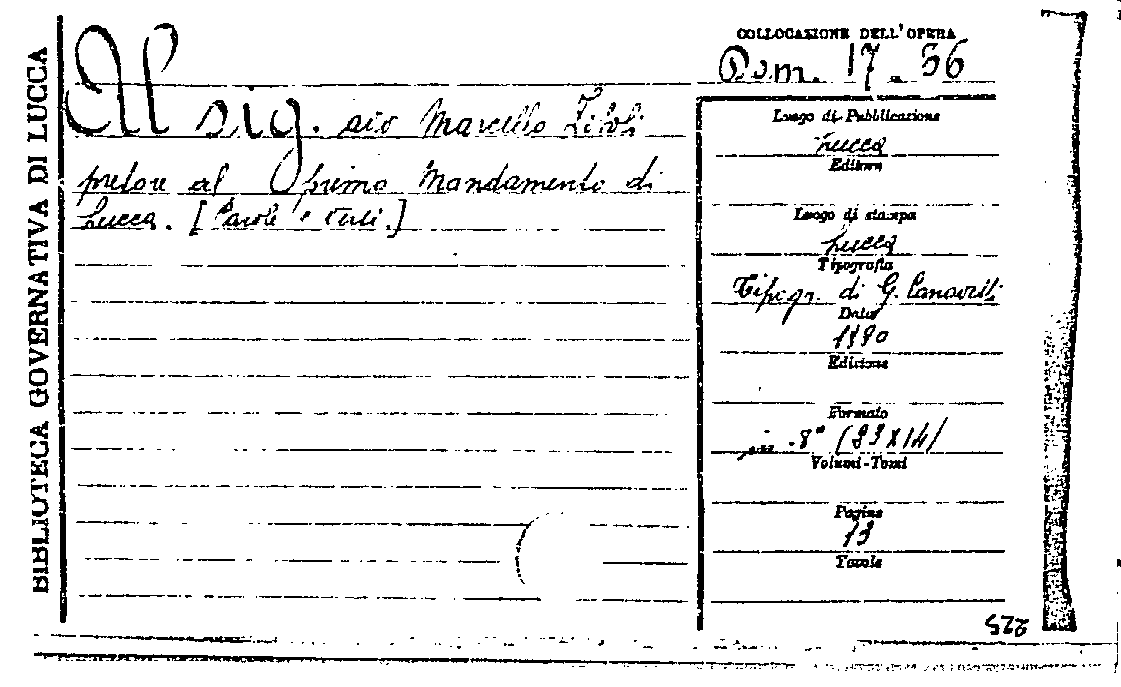 BIBLIOTECA GOVERNATIVA DI LUCCA
Al sig. avv Marcello
pretore al primo Mandamento di
Lucca. [Parole e versi.]
COLLOCAZIONE DELL'OPERA
17. 56
Luogo di Pubblicazione
Lucca
Editore
Luogo di stampa
Lucca
Tipografia
Tipogr. di G. Canovetti
Data
1890
Edizione
Formato
in-8° (23X14)
Volumi-Tomi
Pagine
13
Tavole
225